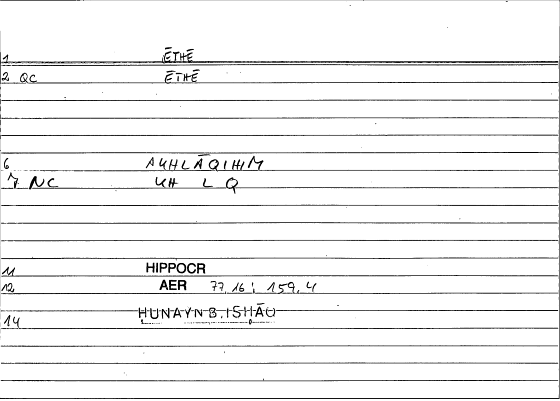 1 ĒTHĒ
2 QC ĒTHĒ
6 AKHLĀQIHIM
7 NC KH L Q
11 HIPPOCR
12 AER 77,16; 159,4
14 ḤUNAYN B. ISḤĀQ